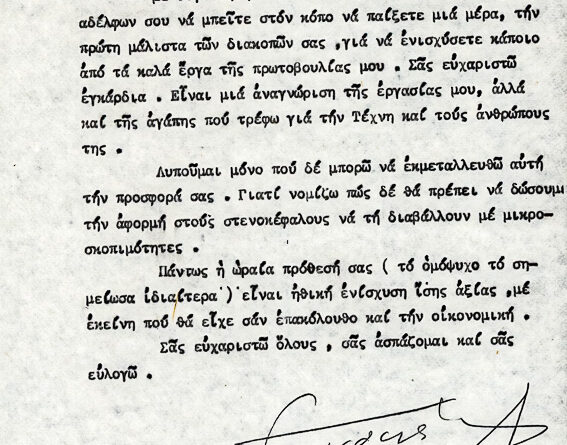 ἀδέλφων σου νά μπεῖτε στόν κόπο νά παίξετε μιά μέρα, τήν
πρώτη μάλιστα τῶν διακοπῶν σας ,γιά νά ἐνισχύσετε κάποιο
ἀπό τά καλά ἔργα τῆς πρωτοβουλίας μου . Σᾶς εὐχαριστῶ
ἐγκάρδια . Εἶναι μιά ἀναγνώριση τῆς ἐργασίας μου, ἀλλά
καί τῆς ἀγάπης πού τρέφω γιά τήν Τέχνη καί τούς ἀνθρώπους
της .
Λυποῦμαι μόνο πού δέ μπορῶ νά ἐκμεταλλευθῶ αὐτή
τήν προσφορά σας . Γιατί νομίζω πώς δέ θά πρέπει νά δώσουμε
τήν ἀφορμή στούς στενοκέφαλους νά τή διαβάλλουν μέ μικρο-
σκοπιμότητες .
Πάντως ἡ ὡραία πρόθεσή σας ( τό ὁμόψυχο τό ση-
μείωσα ἰδιαίτερα ) εἶναι ἠθική ἐνίσχυση ἴσης ἀξίας ,μέ
ἐκείνη πού θά εἶχε σάν ἐπακόλουθο καί τήν οἰκονομική .
Σᾶς εὐχαριστῶ ὅλους , σᾶς ἀσπάζομαι καί σᾶς
εὐλογῶ .